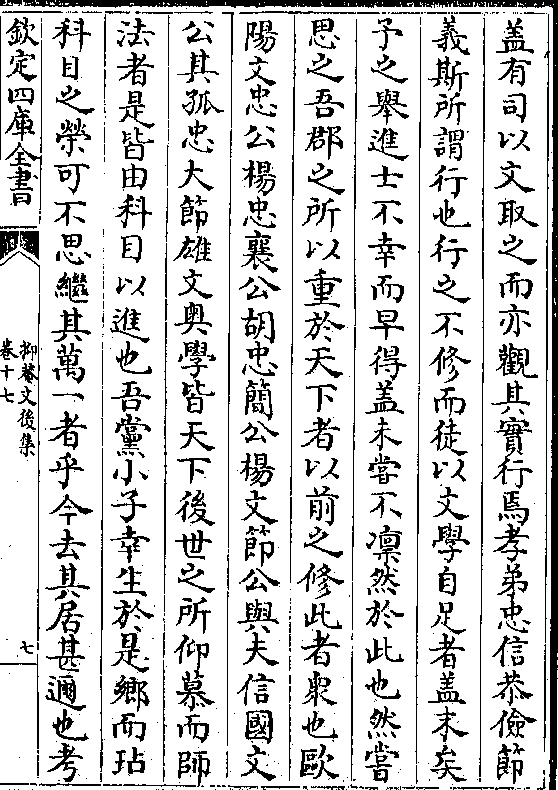 盖有司以文取之而亦觀其實行焉孝弟忠信恭儉節
義斯所謂行也行之不修而徒以文學自足者盖末矣
予之舉進士不幸而早得盖未嘗不凛然於此也然嘗
思之吾郡之所以重於天下者以前之修此者衆也歐
陽文忠公楊忠襄公胡忠簡公楊文節公與夫信國文
公其孤忠大節雄文奥學皆天下後世之所仰慕而師
法者是皆由科目以進也吾黨小子幸生於是鄉而玷
科目之榮可不思繼其萬一者乎今去其居甚邇也考
欽定四庫全書
抑菴文後集
卷十七
七